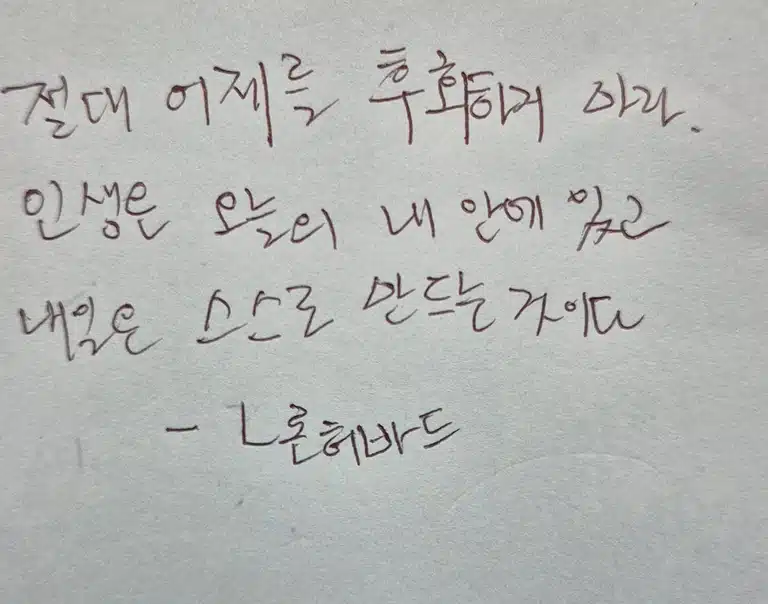 절대 어제를 후회하지 마라.
인생은 오늘의 내 안에 있고
내일은 스스로 만드는 것이다
- L론허바드